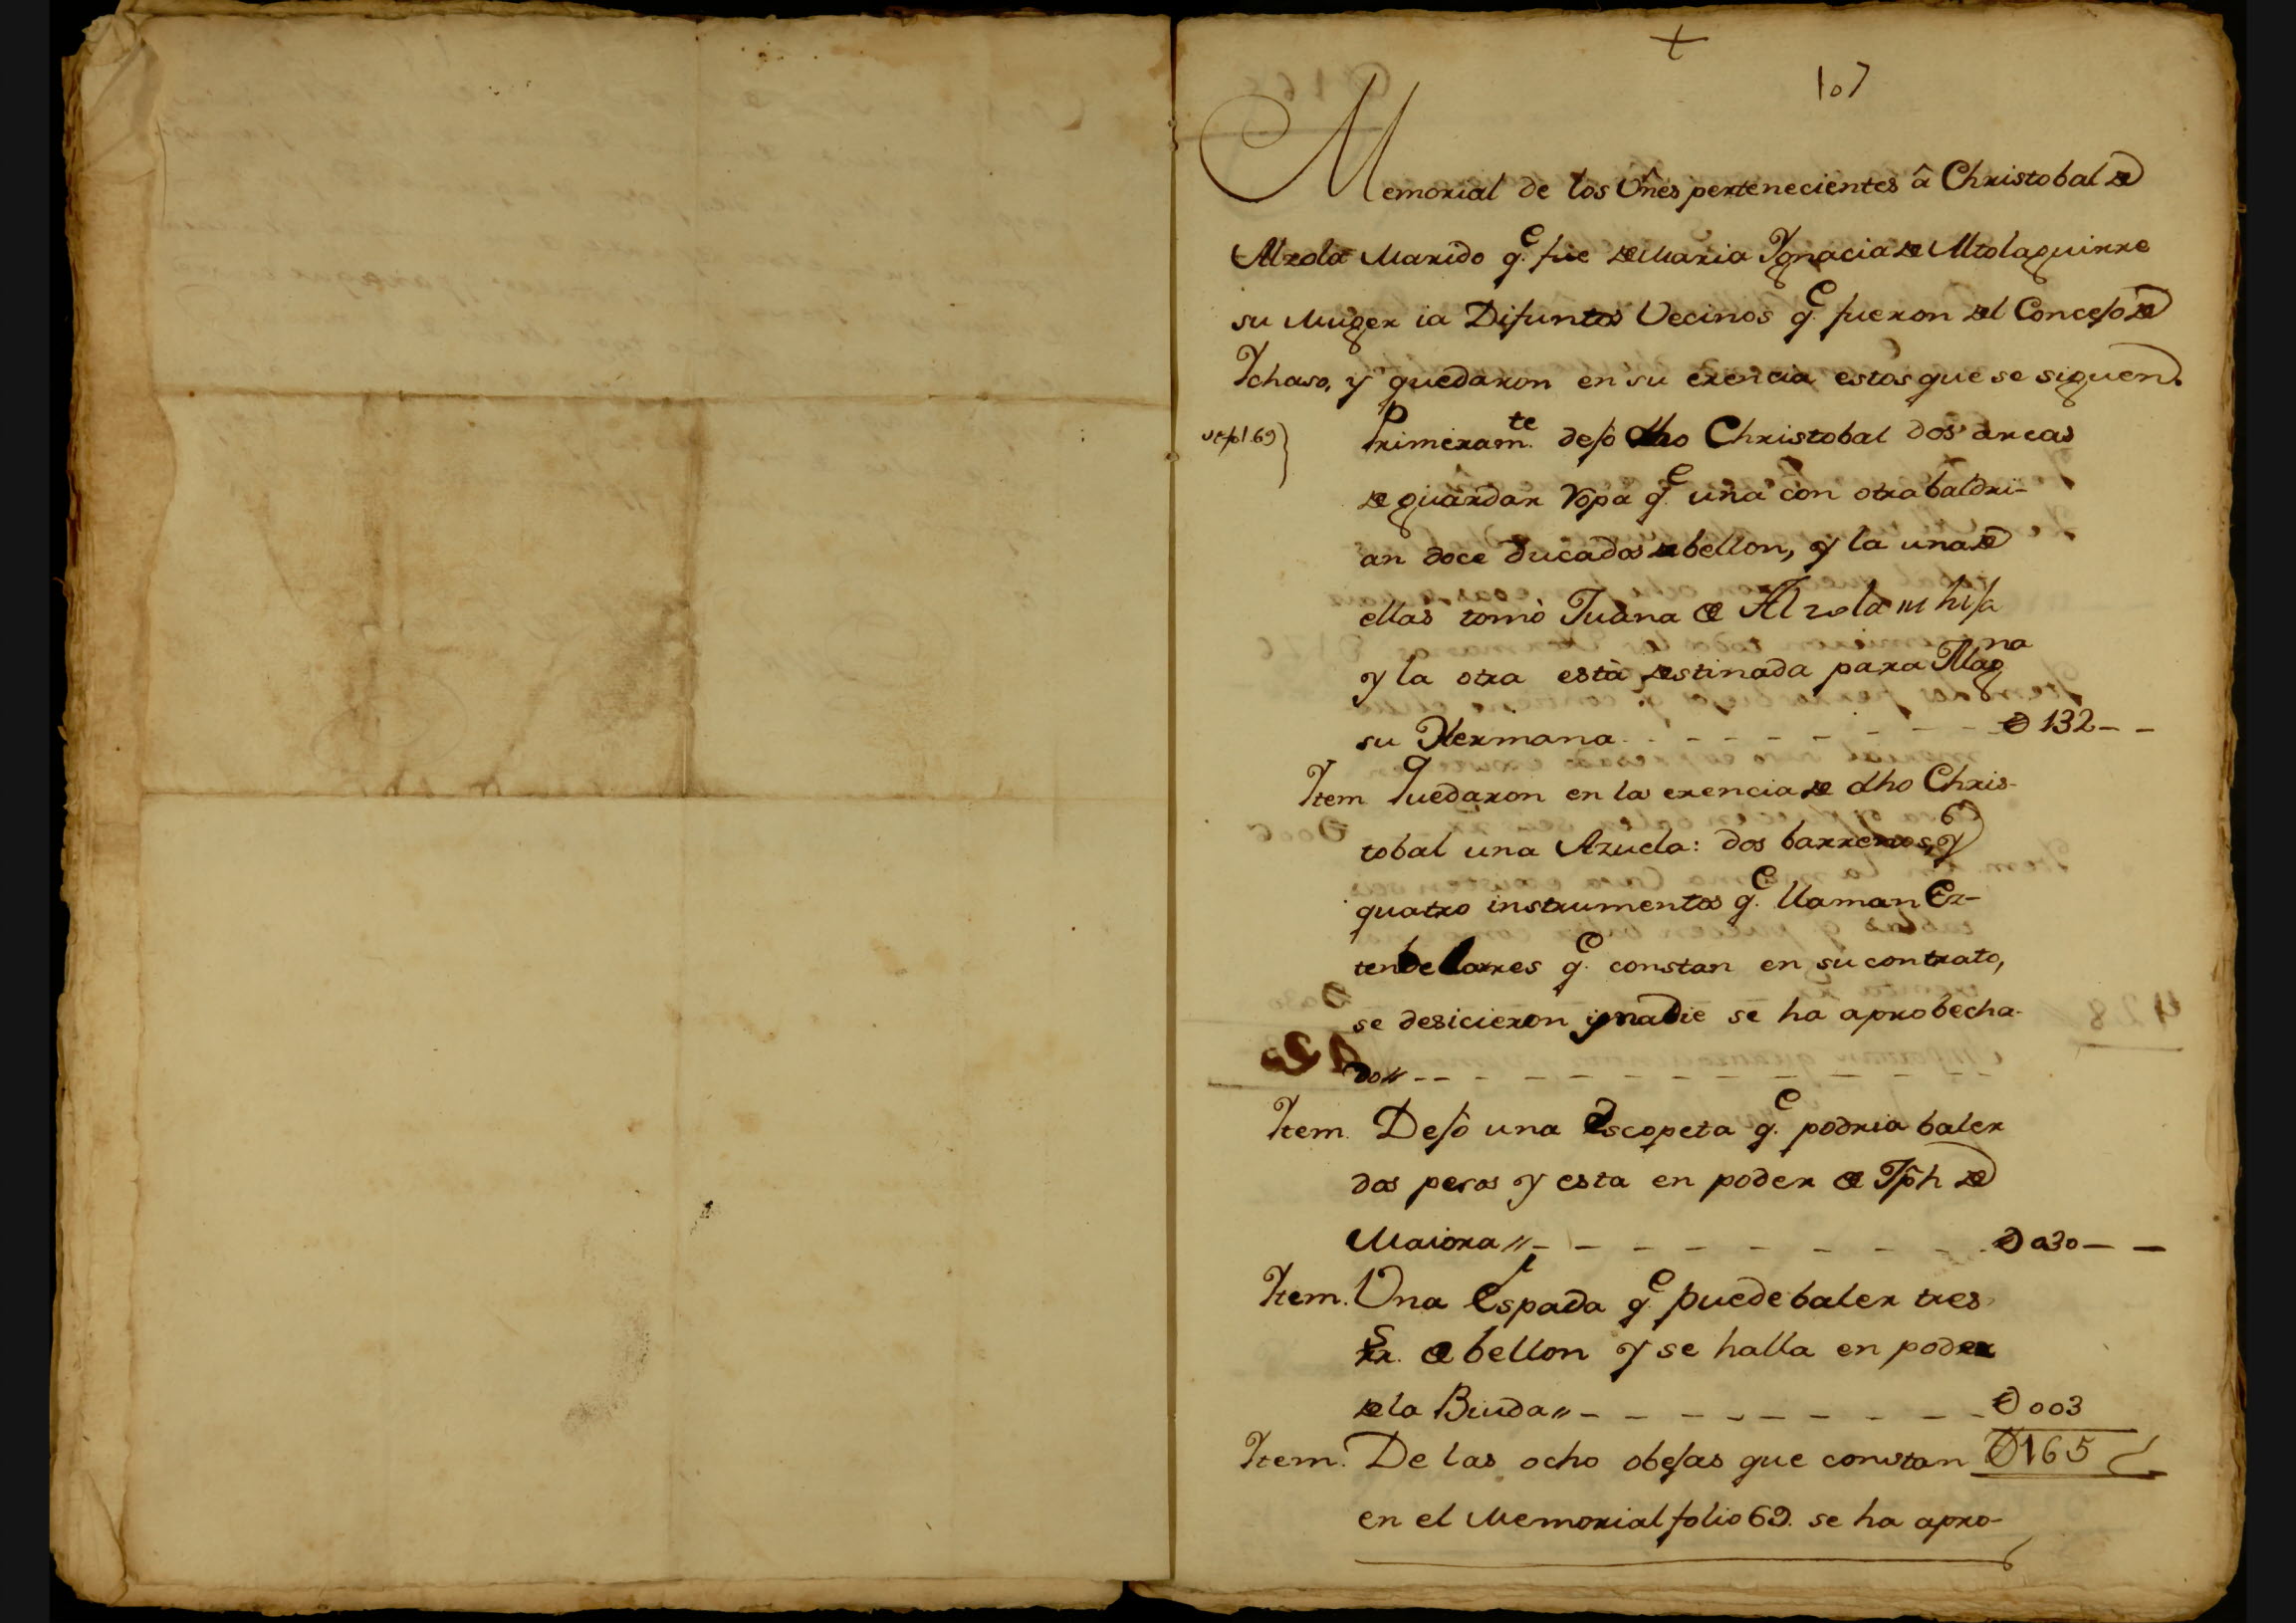 +
107
Memorial de los Vn̂es pertenecientes â Christobal de
Alzola Marido q.e fue de Maria Ygnacia de Altolaguirre
su Muger ia Difuntos Vecinos q.e fueron del Concejo de
Ychaso, y quedaron en su erencia estos que se siguen.
Primeram.te dejò dho Christobal dos arcas
de guardar ropa q.e una con otra baldri-
an doce ducados de bellon, y la una de
ellas tomò Juana de Alzola su hija
y la otra està destinada para Mag.na
su Hermana - - - - - - - - - D 132 - -
Ytem Quedaron en la erencia de dho Chris-
tobal una Azuela: dos barrenos, y
quatro instrumentos q.e llaman Ez-
tendelarres q.e constan en su contrato,
se desicieron y nadie se ha aprobecha-
do,, - - - - - - - - - - - -
Ytem. Dejò una Escopeta q.e podria baler
dos pesos y esta en poder de Jph de
Maiora,, - - - - - - - - - D 030 - -
Ytem. Una Espada q.e puede baler tres
rr.s de bellon y se halla en poder
de la Biuda,, - - - - - - - - - D 003
Ytem. De las ocho obejas que constan D 165
en el Memorial folio 69. se ha apro-